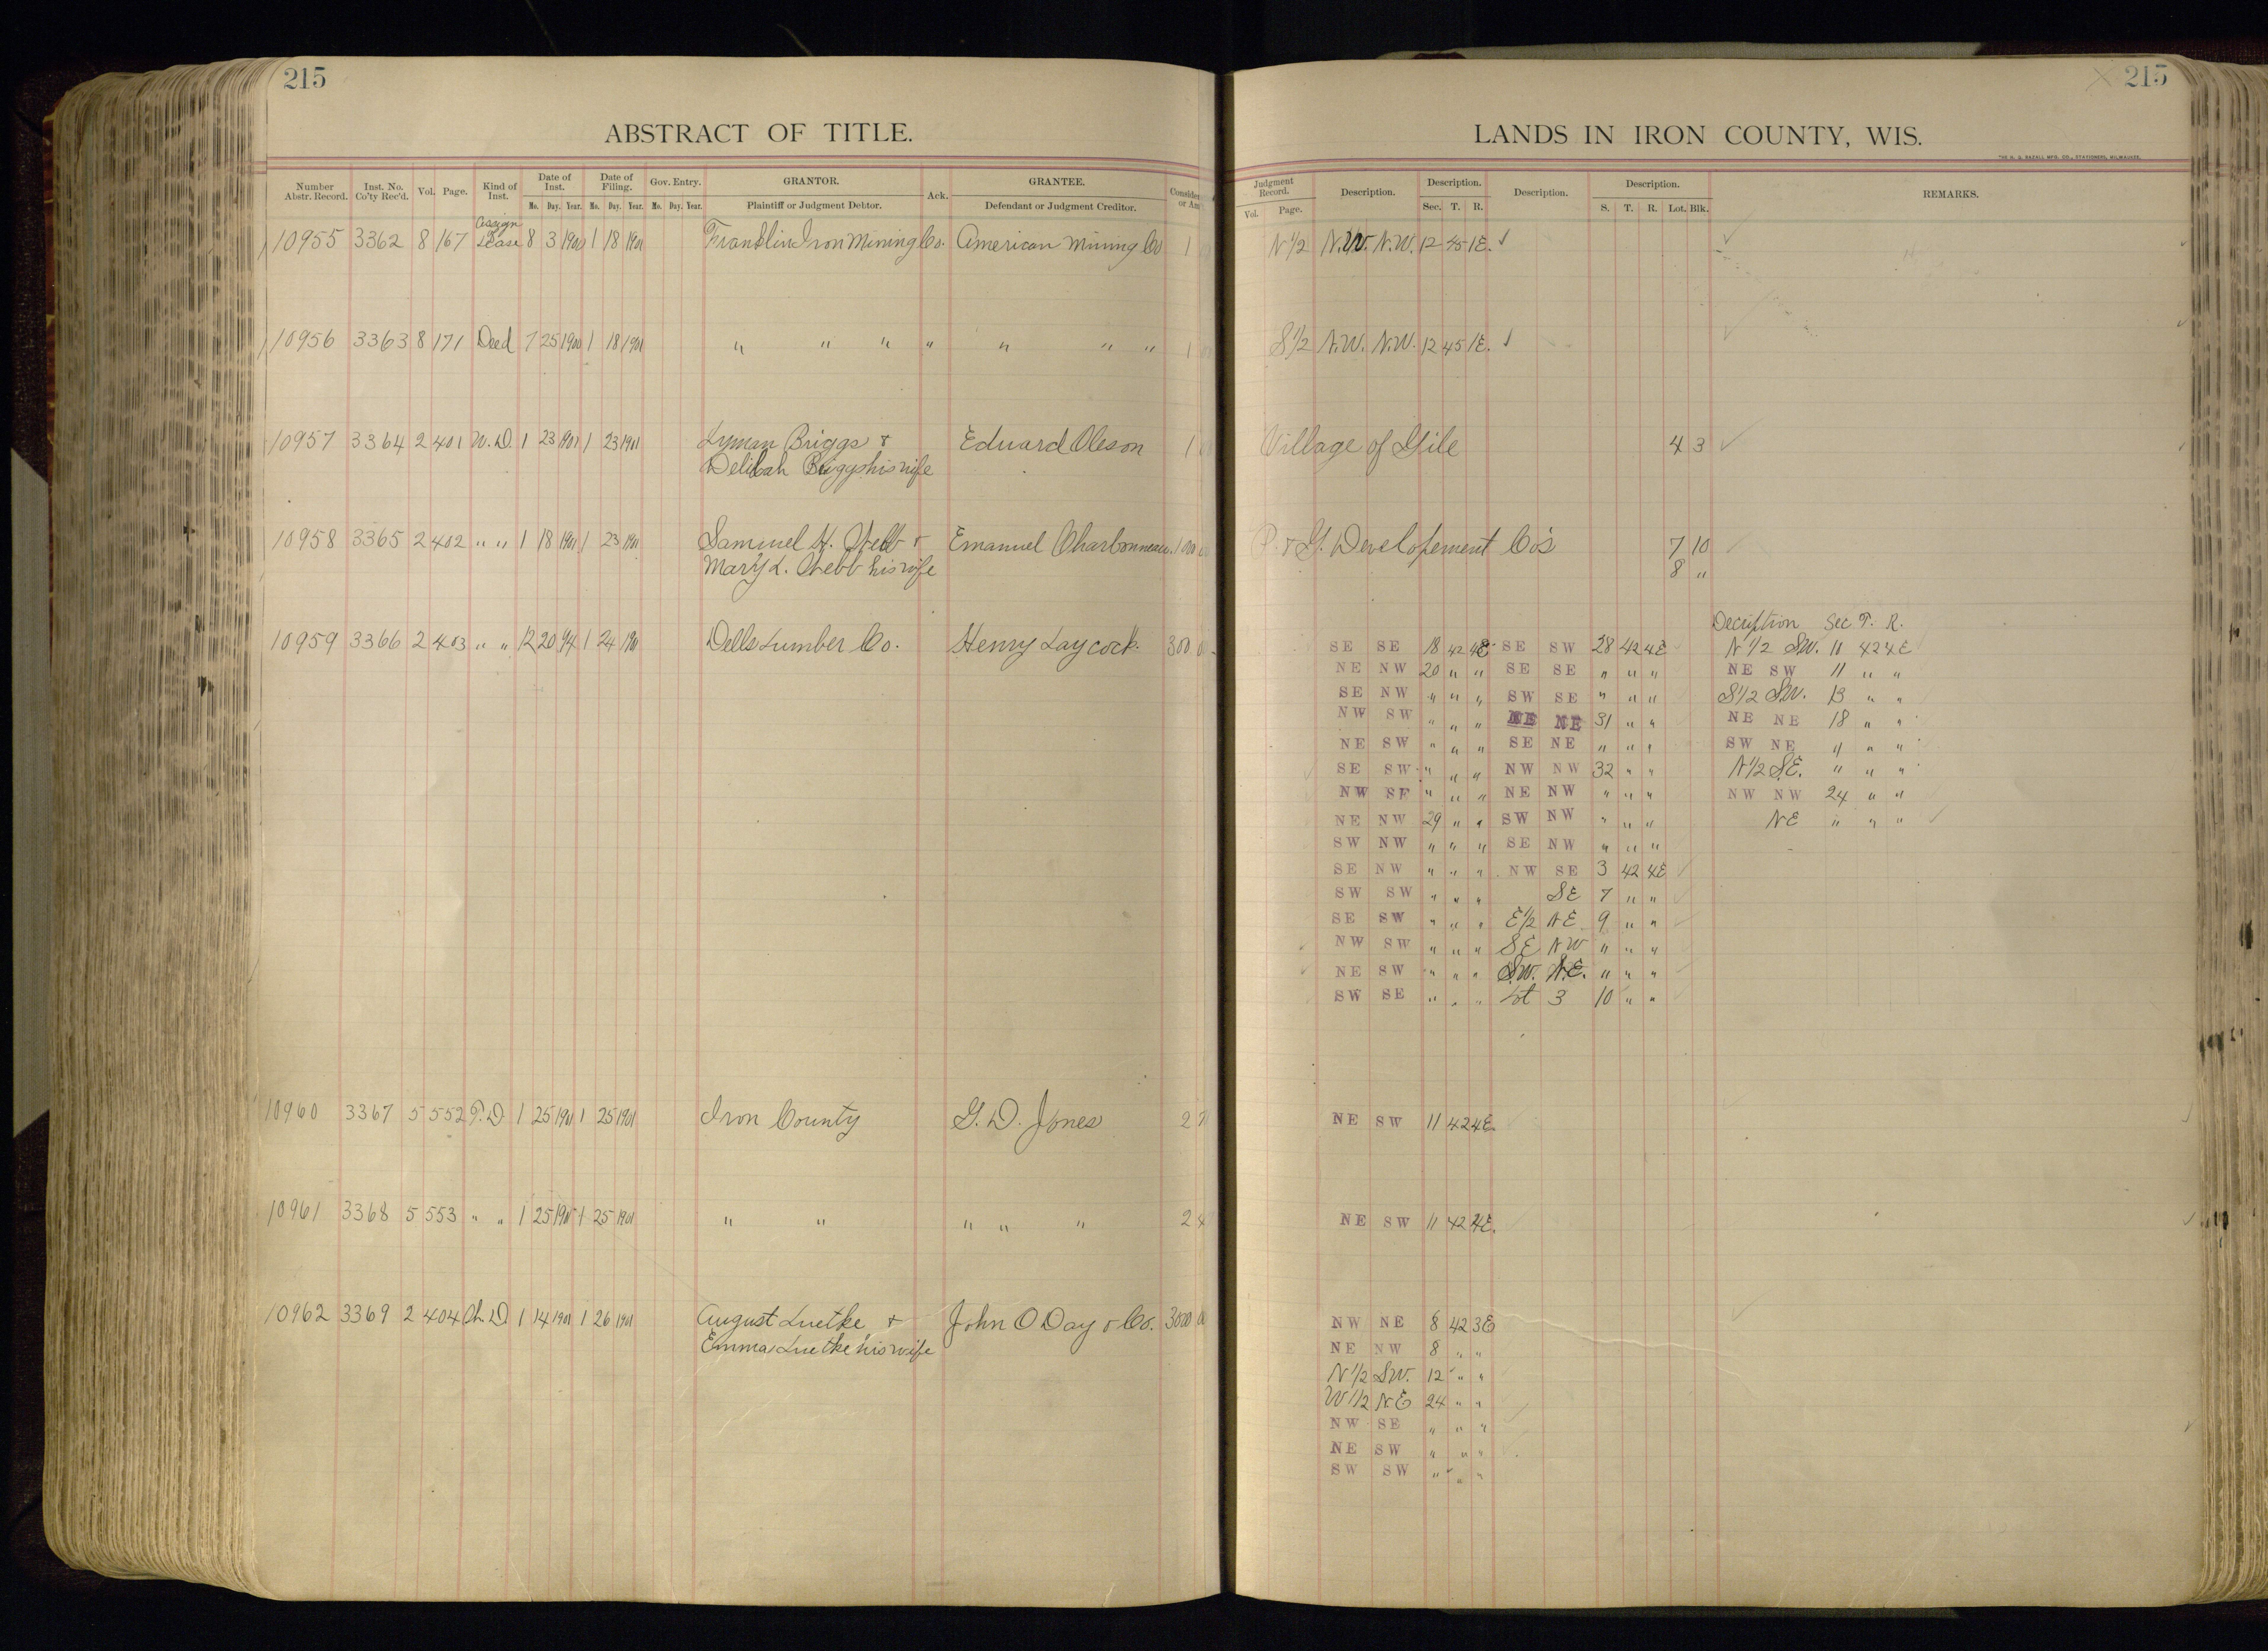 215
ABSTRACT OF TITLE.
Number Abstr. Record. Inst. No. Co'ty Rec'd. Vol. Page. Kind of Inst. Date of Inst. Mo. Day. Year. Date of Filing. Mo. Day. Year. Gov. Entry. Mo. Day. Year. GRANTOR. Plaintiff or Judgment Debtor. Ack. GRANTEE. Defendant or Judgment Creditor.
10955 3362 8 167 Assign of Lease 8 3 1900 1 18 1901 Franklin Iron Mining Co. American Mining Co 1
10956 3363 8 171 Deed 7 25 1900 1 18 1901 " " " " " " " 1
10957 3364 2 401 W. D. 1 23 1901 1 23 1901 Lyman Briggs & Eduard Oleson 1
Delilah Briggs his wife
10958 3365 2 402 " " 1 18 1901 1 23 1901 Samuel H. Webb & Emanuel Charbonneau.
Mary L. Webb his wife
10959 3366 2 403 " " 12 20 94 1 24 1901 Dells Lumber Co. Henry Laycock. 300
10960 3367 5 552 T. D. 1 25 1901 1 25 1901 Iron County G. D. Jones 2
10961 3368 5 553 " " 1 25 1901 1 25 1901 " " " " " 2
10962 3369 2 404 W. D. 1 14 1901 1 26 1901 August Luetke & John O Day & Co. 3000
Emma Luetke his wife
215
LANDS IN IRON COUNTY, WIS.
Judgment Record. Vol. Page. Description. Description. Sec. T. R. Description. Description. S. T. R. Lot. Blk. REMARKS.
N 1/2 N.W. N.W. 12 45 1E.
S 1/2 N.W. N.W. 12 45 1E.
Village of Gile 4 3
P. & G. Developement Co's 7 10
8 "
Decription Sec T. R.
SE SE 18 42 4E SE SW 28 42 4E N 1/2 SW. 11 42 4E
NE NW 20 " " SE SE " " " NE SW 11 " "
SE NW " " " SW SE " " " S 1/2 SW. 13 " "
NW SW " " " NE NE 31 " " NE NE 18 " "
NE SW " " " SE NE " " " SW NE " " "
SE SW " " " NW NW 32 " " N 1/2 S.E. " " "
NW SE " " " NE NW " " " NW NW 24 " "
NE NW 29 " " SW NW " " " NE " " "
SW NW " " " SE NW " " "
SE NW " " " NW SE 3 42 4E
SW SW " " " SE 7 " "
SE SW " " " E 1/2 NE 9 " "
NW SW " " " SE NW " " "
NE SW " " " S.W. N.E. " " "
SW SE " " " Lot 3 10 " "
NE SW 11 42 4E.
NE SW 11 42 4E.
NW NE 8 42 3E
NE NW 8 " "
N 1/2 SW. 12 " "
W 1/2 N.E 24 " "
NW SE " " "
NE SW " " "
SW SW " " "